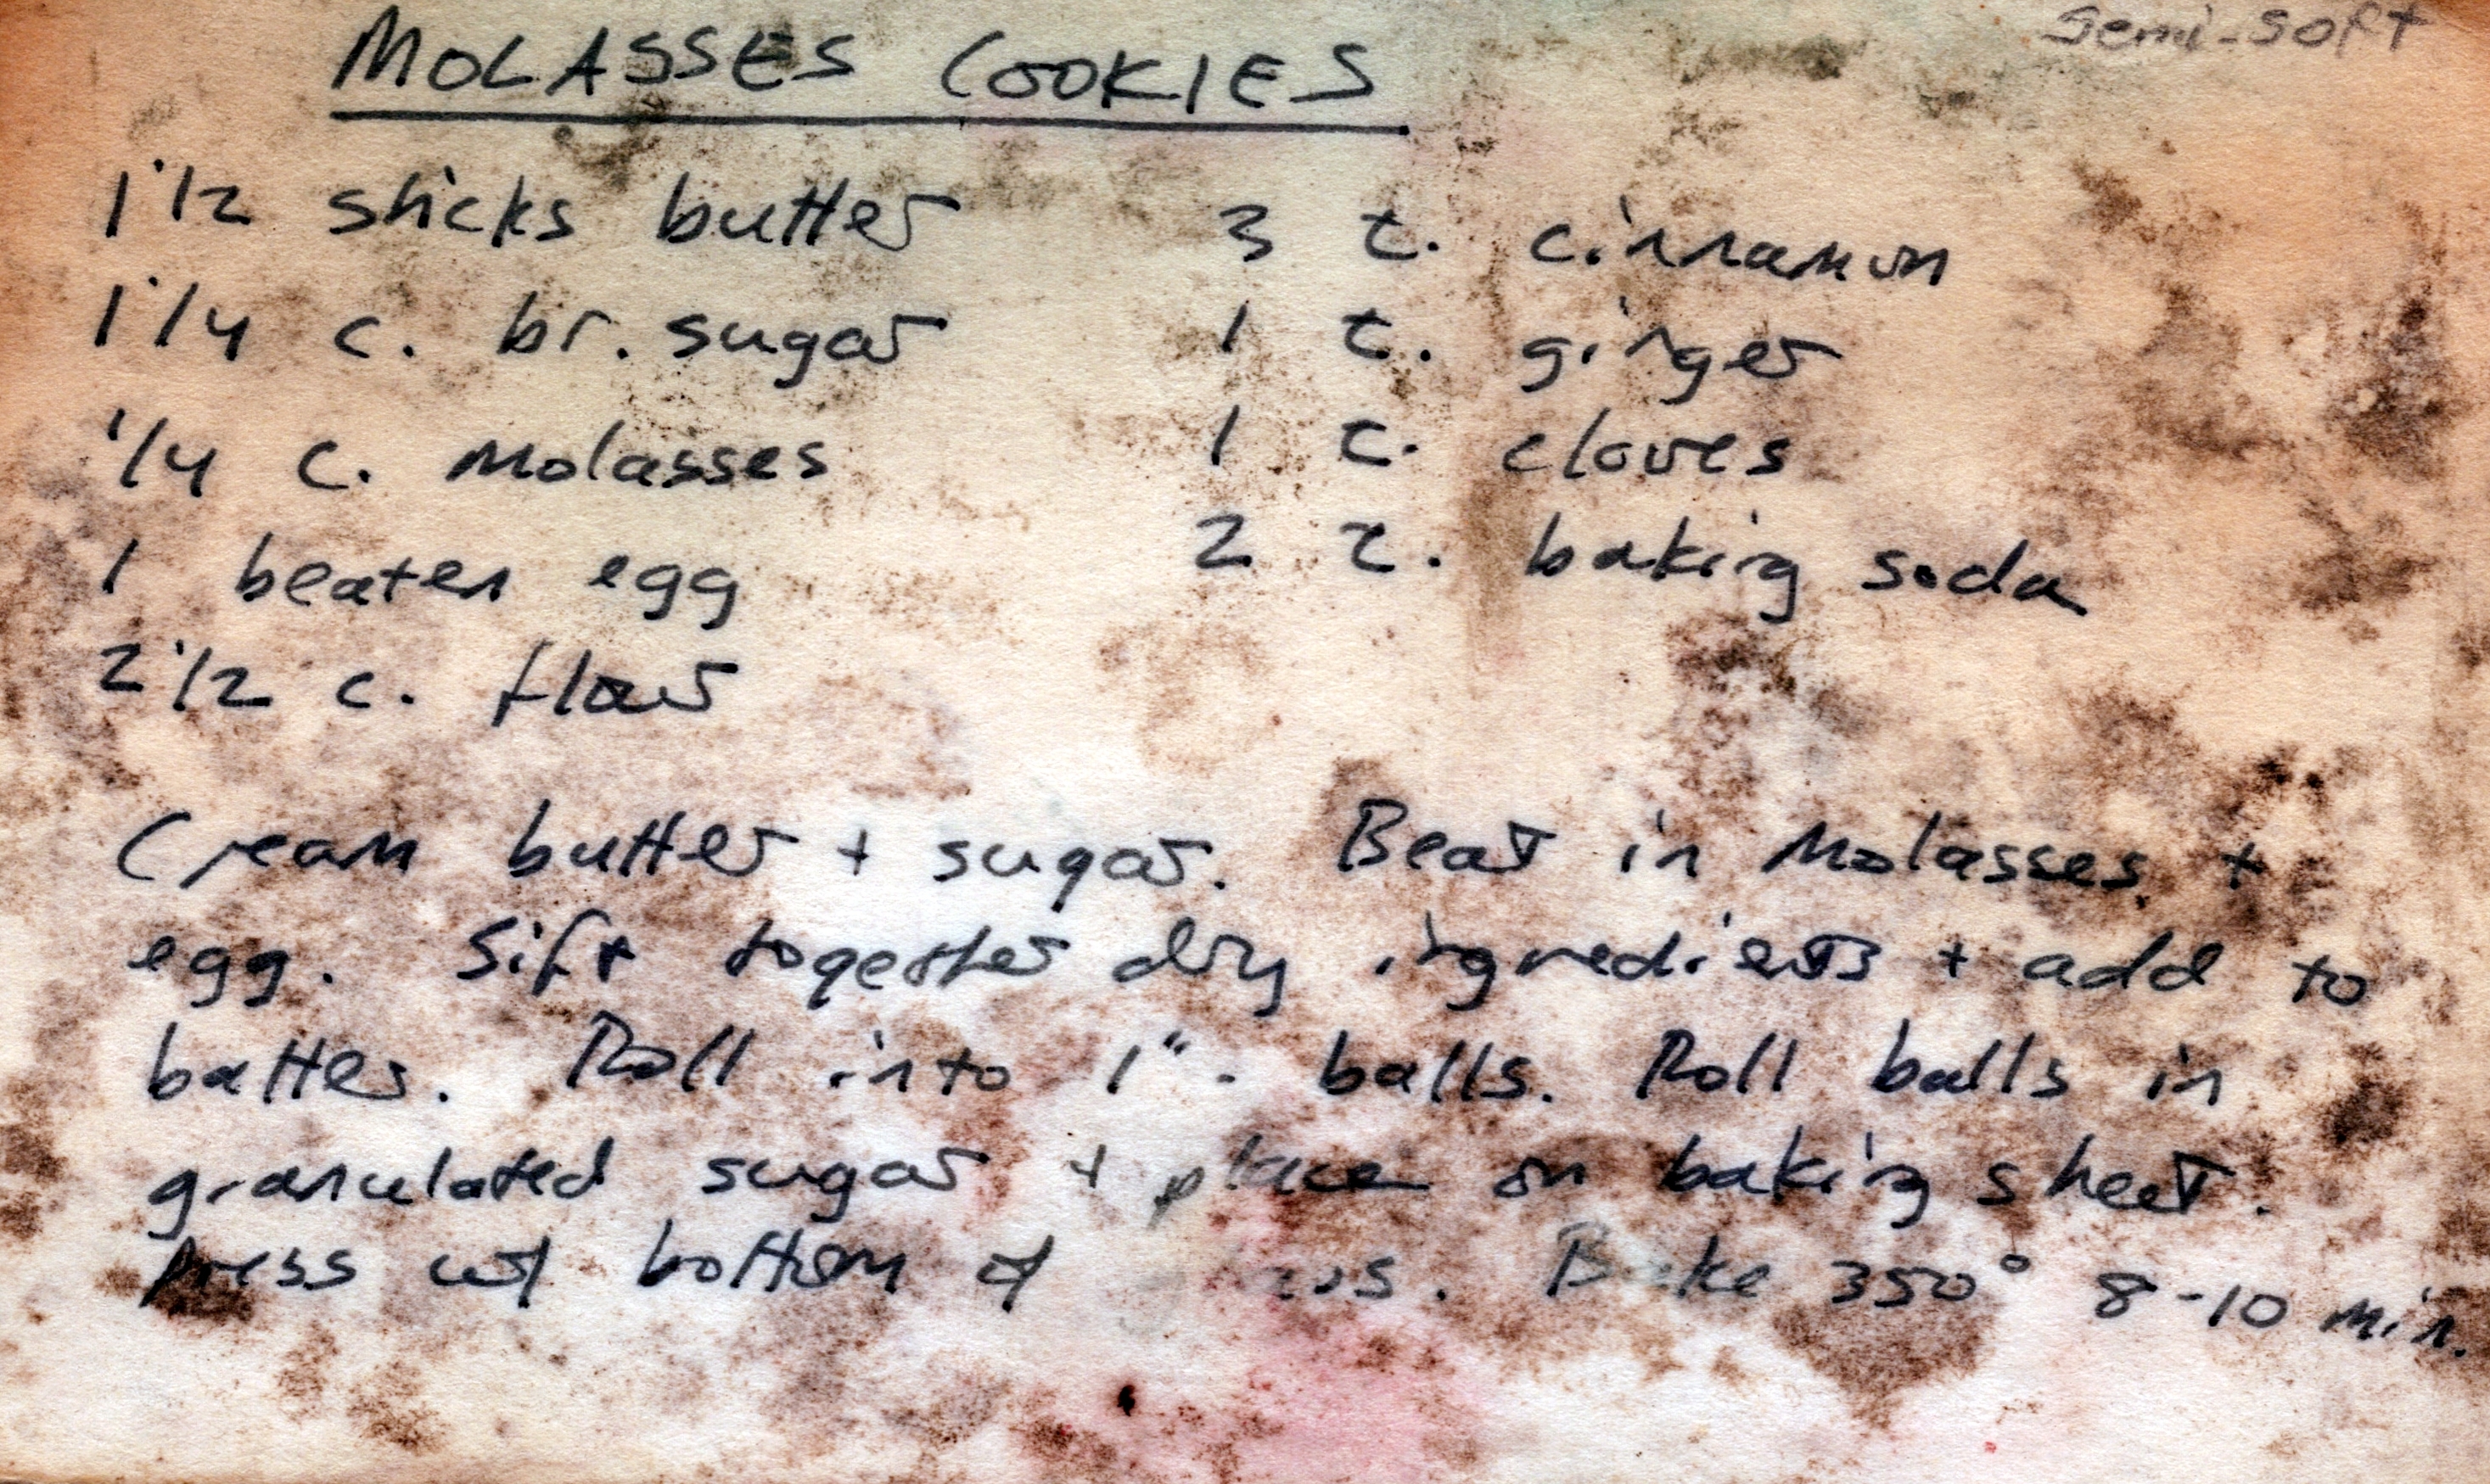 semi-soft
MOLASSES COOKIES
1 1/2 sticks butter
1 1/4 c. br. sugar
1/4 c. molasses
1 beaten egg
2 1/2 c. flour
3 t. cinnamon
1 t. ginger
1 t. cloves
2 t. baking soda
Cream butter + sugar. Beat in molasses +
egg. Sift together dry ingredients + add to
batter. Roll into 1"- balls. Roll balls in
granulated sugar + place on baking sheet.
Press w/ bottom of. Bake 350° 8-10 min.